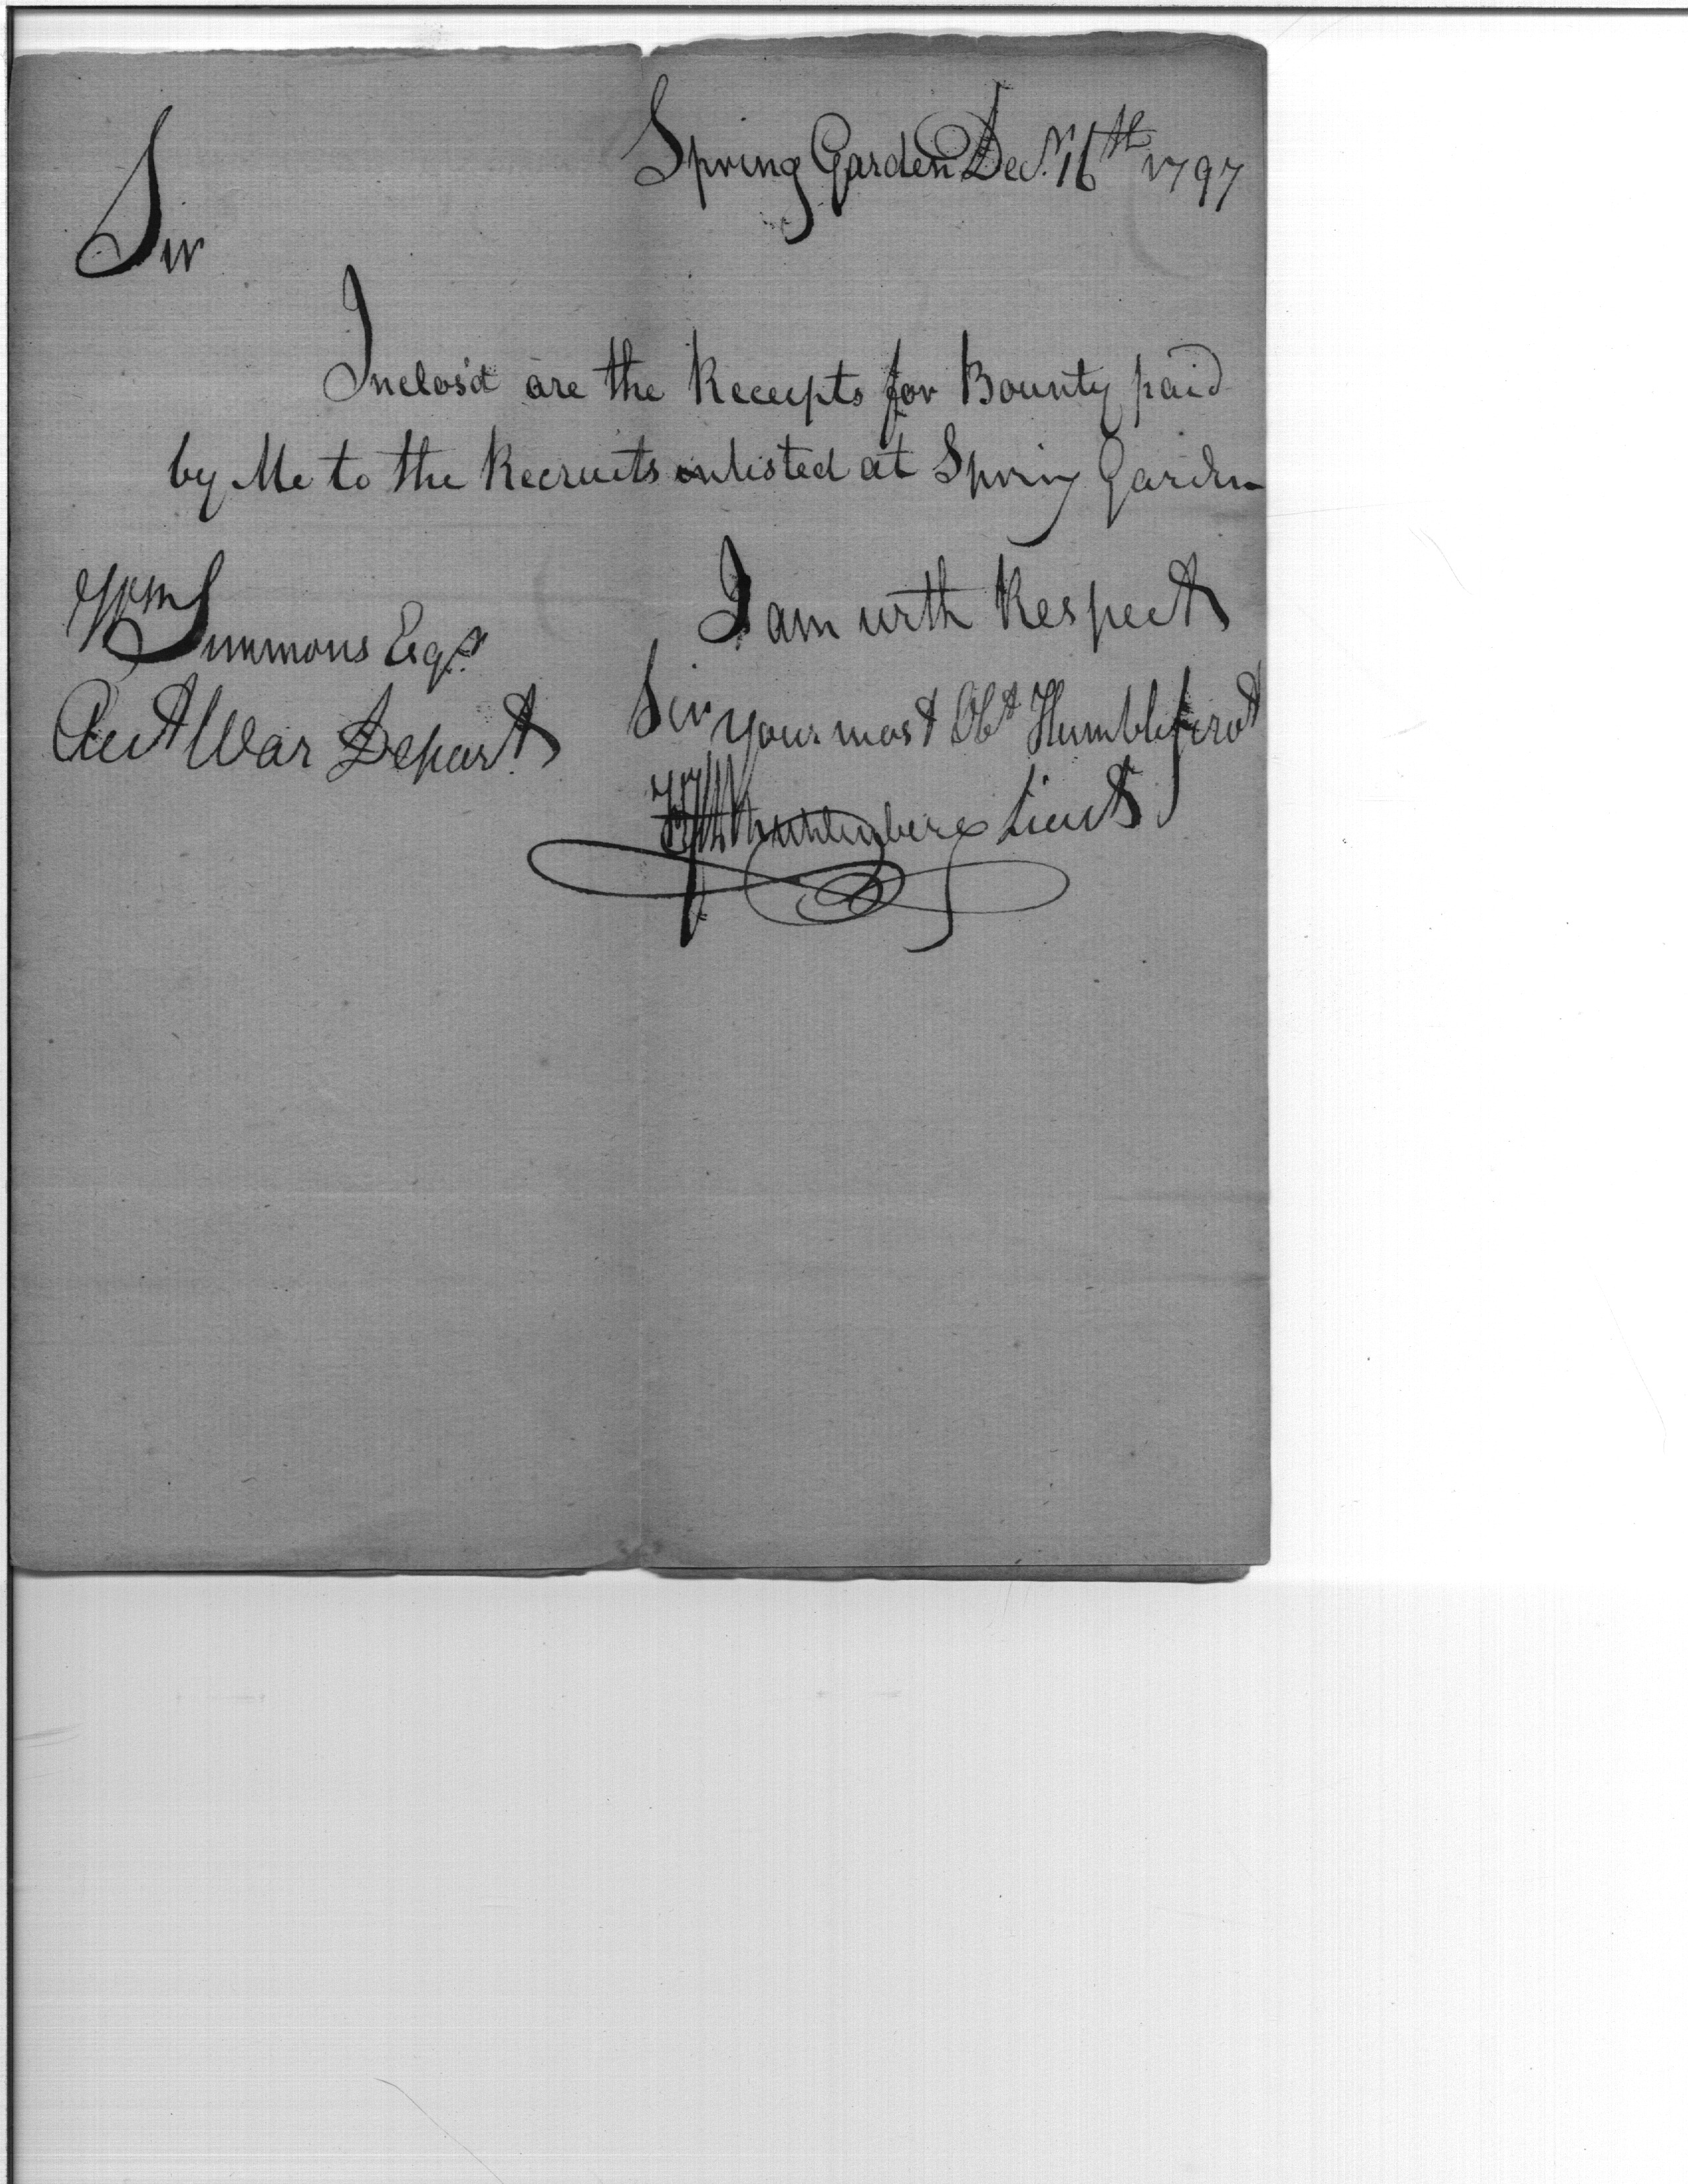 Spring Garden Decr. 16th 1797
Sir
Inclos'd are the Receipts for Bounty paid
by Me to the Recruits enlisted at Spring Garden
I am with Respect
Sir your most Obt Humble servt
Muhlenberg Lieut
Wm Simmons Esqr
Acct War Depart